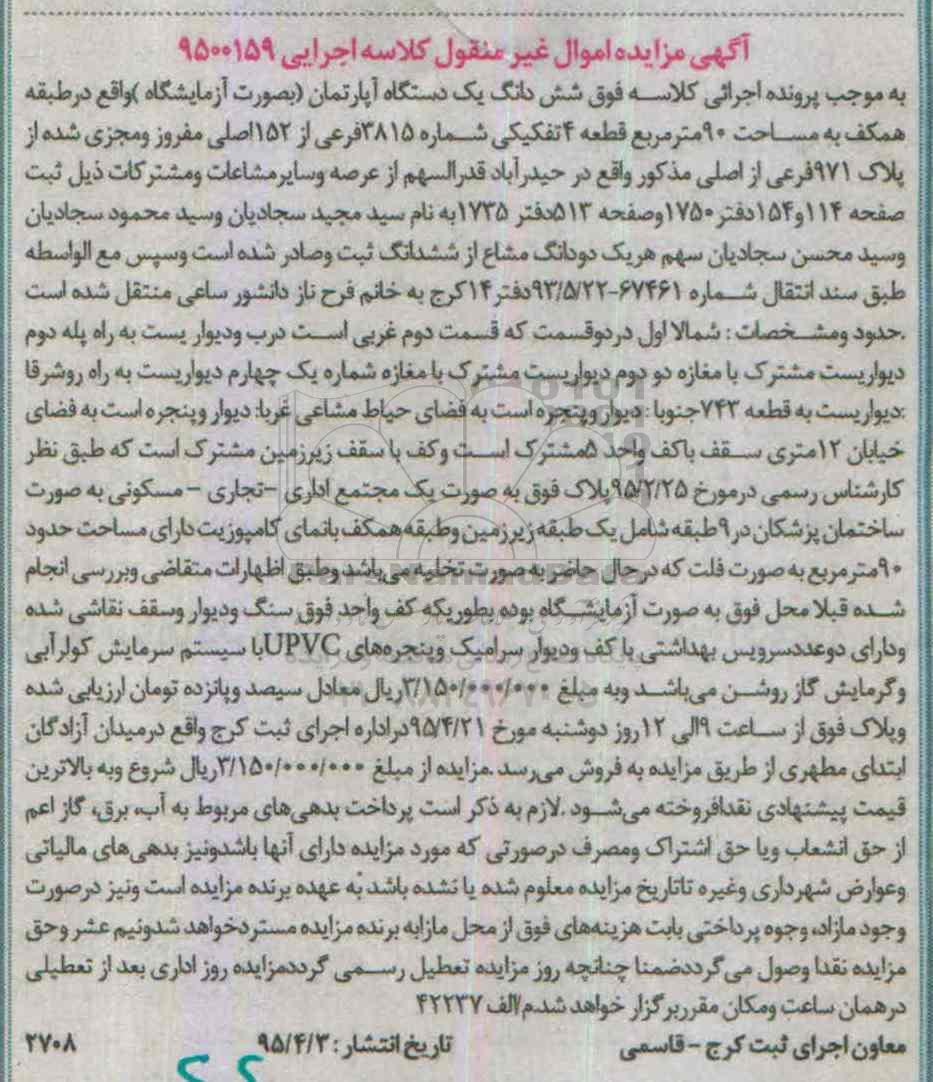 آگهی مزایده اموال غیر منقول کلاسه اجرایی ۹۵۰۰۱۵۹
به موجب پرونده اجرائی کلاسه فوق شش دانگ یک دستگاه آپارتمان (بصورت آزمایشگاه )واقع درطبقه
همکف به مساحت ۹۰مترمربع قطعه ۴تفکیکی شماره ۳۸۱۵فرعی از ۱۵۲اصلی مفروز ومجزی شده از
پلاک ۹۷۱فرعی از اصلی مذکور واقع در حیدرآباد قدرالسهم از عرصه وسایرمشاعات ومشترکات ذیل ثبت
صفحه ۱۱۴و۱۵۴دفتر۱۷۵۰وصفحه ۵۱۳دفتر ۱۷۳۵به نام سید مجید سجادیان وسید محمود سجادیان
وسید محسن سجادیان سهم هریک دودانگ مشاع از ششدانگ ثبت وصادر شده است وسپس مع الواسطه
طبق سند انتقال شماره ۶۷۴۶۱-۹۳/۵/۲۲دفتر۱۴کرج به خانم فرح ناز دانشور ساعی منتقل شده است
.حدود ومشخصات : شمالا اول در دوقسمت که قسمت دوم غربی است درب ودیوار یست به راه پله دوم
دیواریست مشترک با مغازه دو دوم دیواریست مشترک با مغازه شماره یک چهارم دیواریست به راه روشرقا
:دیواریست به قطعه ۷۴۳جنوبا : دیوار وپنجره است به فضای حیاط مشاعی غربا: دیوار وپنجره است به فضای
خیابان ۱۲متری سقف باکف واحد ۵مشترک است وکف با سقف زیرزمین مشترک است که طبق نظر
کارشناس رسمی درمورخ ۹۵/۲/۲۵پلاک فوق به صورت یک مجتمع اداری –تجاری – مسکونی به صورت
ساختمان پزشکان در۹طبقه شامل یک طبقه زیرزمین وطبقه همکف بانمای کامپوزیت دارای مساحت حدود
۹۰مترمربع به صورت فلت که در حال حاضر به صورت تخلیه می‌باشد وطبق اظهارات متقاضی وبررسی انجام
شده قبلا محل فوق به صورت آزمایشگاه بوده بطوریکه کف واحد فوق سنگ ودیوار وسقف نقاشی شده
ودارای دوعددسرویس بهداشتی با کف ودیوار سرامیک وپنجره‌های UPVCبا سیستم سرمایش کولرآبی
وگرمایش گاز روشن می‌باشد وبه مبلغ ۳/۱۵۰/۰۰۰/۰۰۰ریال معادل سیصد وپانزده تومان ارزیابی شده
وپلاک فوق از ساعت ۹الی ۱۲روز دوشنبه مورخ ۹۵/۴/۲۱دراداره اجرای ثبت کرج واقع درمیدان آزادگان
ابتدای مطهری از طریق مزایده به فروش می‌رسد .مزایده از مبلغ ۳/۱۵۰/۰۰۰/۰۰۰ریال شروع وبه بالاترین
قیمت پیشنهادی نقدافروخته می‌شود .لازم به ذکر است پرداخت بدهی‌های مربوط به آب، برق، گاز اعم
از حق انشعاب ویا حق اشتراک ومصرف درصورتی که مورد مزایده دارای آنها باشدونیز بدهی‌های مالیاتی
وعوارض شهرداری وغیره تاتاریخ مزایده معلوم شده یا نشده باشد به عهده برنده مزایده است ونیز درصورت
وجود مازاد، وجوه پرداختی بابت هزینه‌های فوق از محل مازابه برنده مزایده مستردخواهد شدونیم عشر وحق
مزایده نقدا وصول می گرددضمنا چنانچه روز مزایده تعطیل رسمی گرددمزایده روز اداری بعد از تعطیلی
درهمان ساعت ومکان مقرربرگزار خواهد شد.م/الف ۴۲۲۳۷
معاون اجرای ثبت کرج – قاسمی تاریخ انتشار : ۹۵/۴/۳ ۲۷۰۸